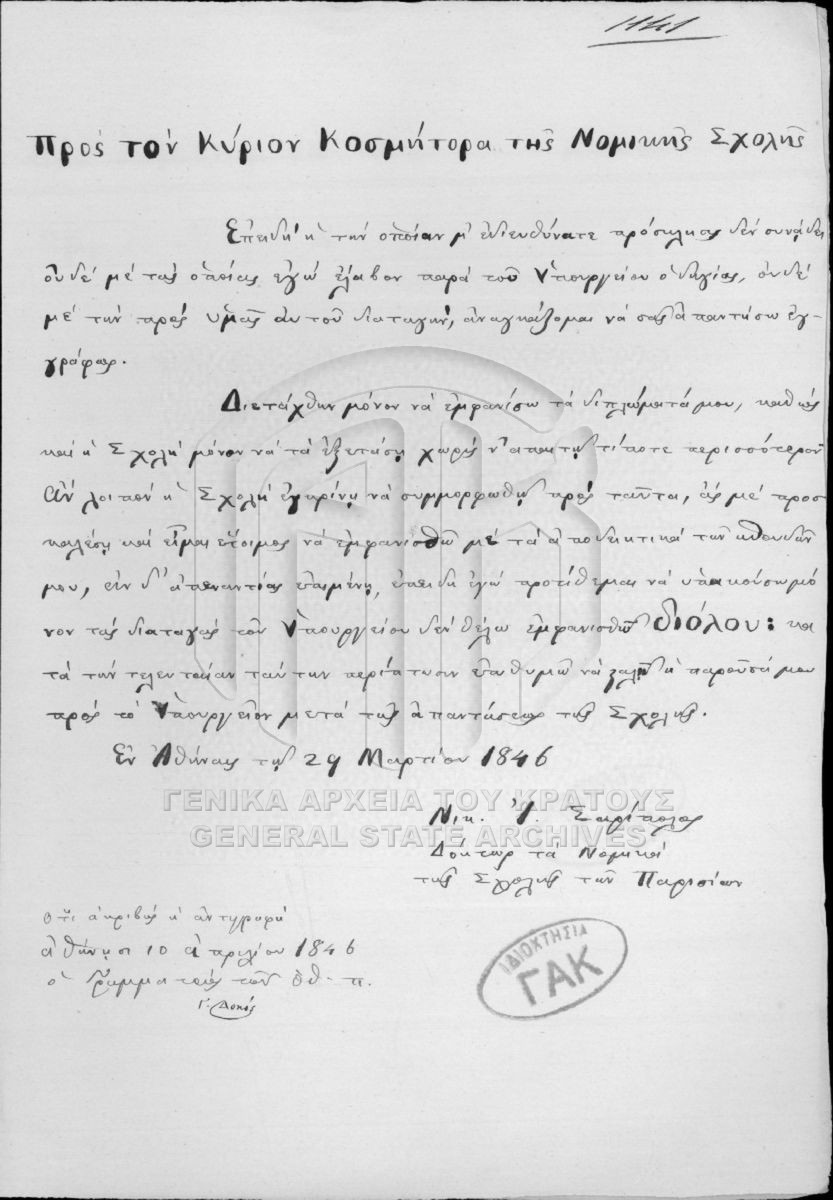 1141
Πρὸς τὸν Κύριον Κοσμήτορα τῆς Νομικῆς Σχολῆς
Ἐπειδὴ ἡ τὴν ὁποίαν μ' ἐδιευθύνατε πρόσκλησις δὲν συνάδει
οὐδὲ μὲ τὰς ὁποίας ἐγὼ ἔλαβον παρὰ τοῦ Ὑπουργείου ὁδηγίας, οὐδὲ
μὲ τὴν πρὸς ὑμᾶς αὐτοῦ διαταγὴν, ἀναγκάζομαι νὰ σᾶς ἀπαντήσω ἐγ-
γράφως.
Διετάχθην μόνον νὰ ἐμφανίσω τὰ διπλώματά μου, καθὼς
καὶ ἡ Σχολὴ μόνον νὰ τὰ ἐξετάσῃ χωρὶς ν' ἀπαιτῇ τίποτε περισσότερον
Ἂν λοιπὸν ἡ Σχολὴ ἐγκρίνῃ νὰ συμμορφωθῇ πρὸς ταῦτα, ἂς μὲ προσ
καλέσῃ καὶ εἶμαι ἕτοιμος νὰ ἐμφανισθῶ μὲ τὰ ἀποδεικτικὰ τῶν σπουδῶν
μου, εἰν δ' ἀπεναντίας ἐπιμένῃ, ἐπειδὴ ἐγὼ προτίθεμαι νὰ ὑπακούσω μό
νον τὰς διαταγὰς τοῦ Ὑπουργείου δὲν θέλω ἐμφανισθῆ διόλου: κα
τὰ τὴν τελευταίαν ταύτην περίπτωσιν ἐπιθυμῶ νὰ σταλῇ ἡ παροῦσά μου
πρὸς τὸ Ὑπουργεῖον μετὰ τῆς ἀπαντάσεως τῆς Σχολῆς.
Ἐν Ἀθήναις τῇ 29 Μαρτίου 1846
Νικ. Ἰ. Σαρίπολος
Δόκτωρ τὰ Νομικὰ
τῆς Σχολῆς τῶν Παρισίων
Ὅτι ἀκριβὴς ἡ ἀντιγραφὴ
Ἀθήνησι 10 Ἀπριλίου 1846
ὁ Γραμματεὺς τοῦ Ὀθ. π.
Γ. Δοκός
ΓΕΝΙΚΑ ΑΡΧΕΙΑ ΤΟΥ ΚΡΑΤΟΥΣ
GENERAL STATE ARCHIVES
ΙΔΙΟΚΤΗΣΙΑ
ΓΑΚ